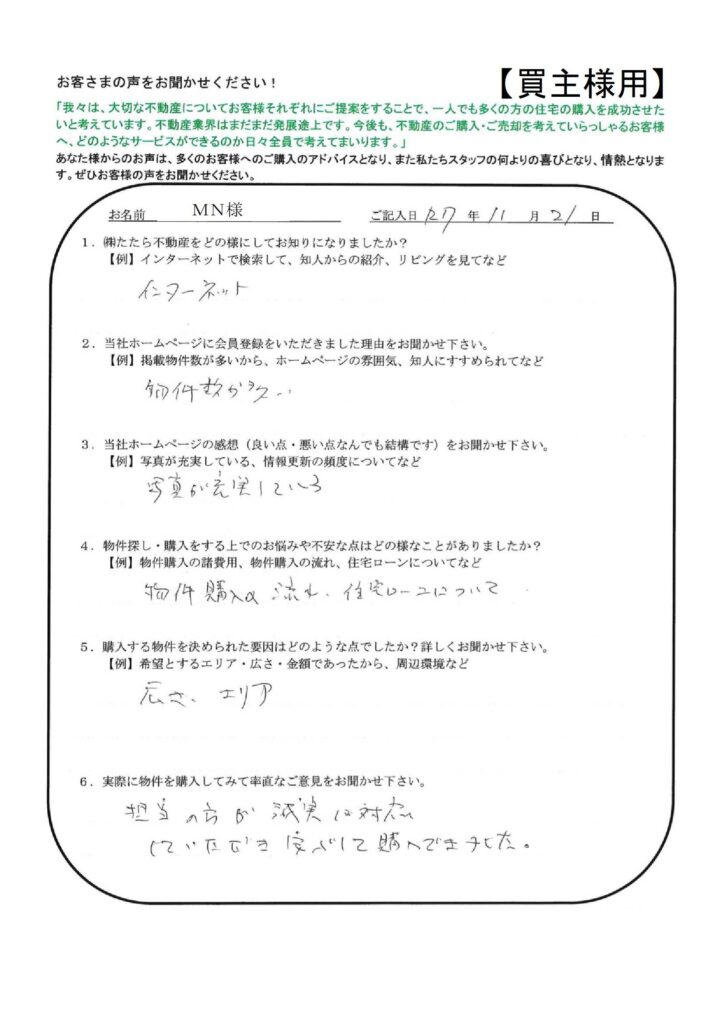 お客さまの声をお聞かせください！
【買主様用】
「我々は、大切な不動産についてお客様それぞれにご提案をすることで、一人でも多くの方の住宅の購入を成功させた
いと考えています。不動産業界はまだまだ発展途上です。今後も、不動産のご購入・ご売却を考えていらっしゃるお客様
へ、どのようなサービスができるのか日々全員で考えてまいります。」
あなた様からのお声は、多くのお客様へのご購入のアドバイスとなり、また私たちスタッフの何よりの喜びとなり、情熱となりま
す。ぜひお客様の声をお聞かせください。
お名前 MN様 ご記入日 27 年 11 月 21 日
1．㈱たたら不動産をどの様にしてお知りになりましたか？
【例】インターネットで検索して、知人からの紹介、リビングを見てなど
インターネット
2．当社ホームページに会員登録をいただきました理由をお聞かせ下さい。
【例】掲載物件数が多いから、ホームページの雰囲気、知人にすすめられてなど
物件数が多い
3．当社ホームページの感想（良い点・悪い点なんでも結構です）をお聞かせ下さい。
【例】写真が充実している、情報更新の頻度についてなど
写真が充実している
4．物件探し・購入をする上でのお悩みや不安な点はどの様なことがありましたか？
【例】物件購入の諸費用、物件購入の流れ、住宅ローンについてなど
物件購入の流れ、住宅ローンについて
5．購入する物件を決められた要因はどのような点でしたか？詳しくお聞かせ下さい。
【例】希望とするエリア・広さ・金額であったから、周辺環境など
広さ、エリア
6．実際に物件を購入してみて率直なご意見をお聞かせ下さい。
担当の方が誠実に対応
していただき安心して購入できました。